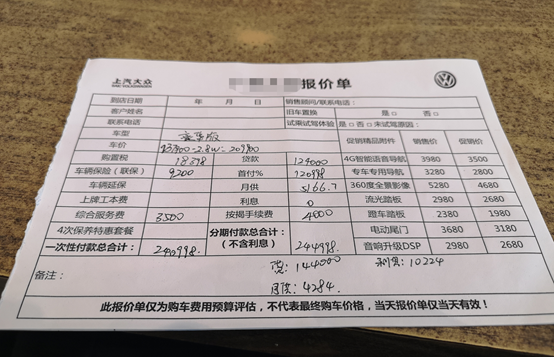 上汽大众
SAIC VOLKSWAGEN
报价单
到店日期 年 月 日 销售顾问/联系电话：
客户姓名 旧车置换 是 ○ 否 ○
联系电话 试乘试驾体验 是 ○ 否 ○ 未试驾原因：
车型 豪华版 促销精品附件 销售价 促销价
车价 -2.8w=
购置税 18398 贷款 124000 4G智能语音导航 3980 3500
车辆保险（联保） 9200 首付% 120998 专车专用导航 3280 2800
车辆延保 月供 5166.7 360度全景影像 5280 4680
上牌工本费 利息 0 流光踏板 2980 2680
综合服务费 3500 按揭手续费 4000 蹬车踏板 2380 1980
4次保养特惠套餐 分期付款总合计： 电动尾门 3680 3180
一次性付款总合计： 240998. （不含利息） 244998. 音响升级DSP 2980 2680
备注： 贷：144000 利息：10224
月供：4284.
此报价单仅为购车费用预算评估，不代表最终购车价格，当天报价单仅当天有效！